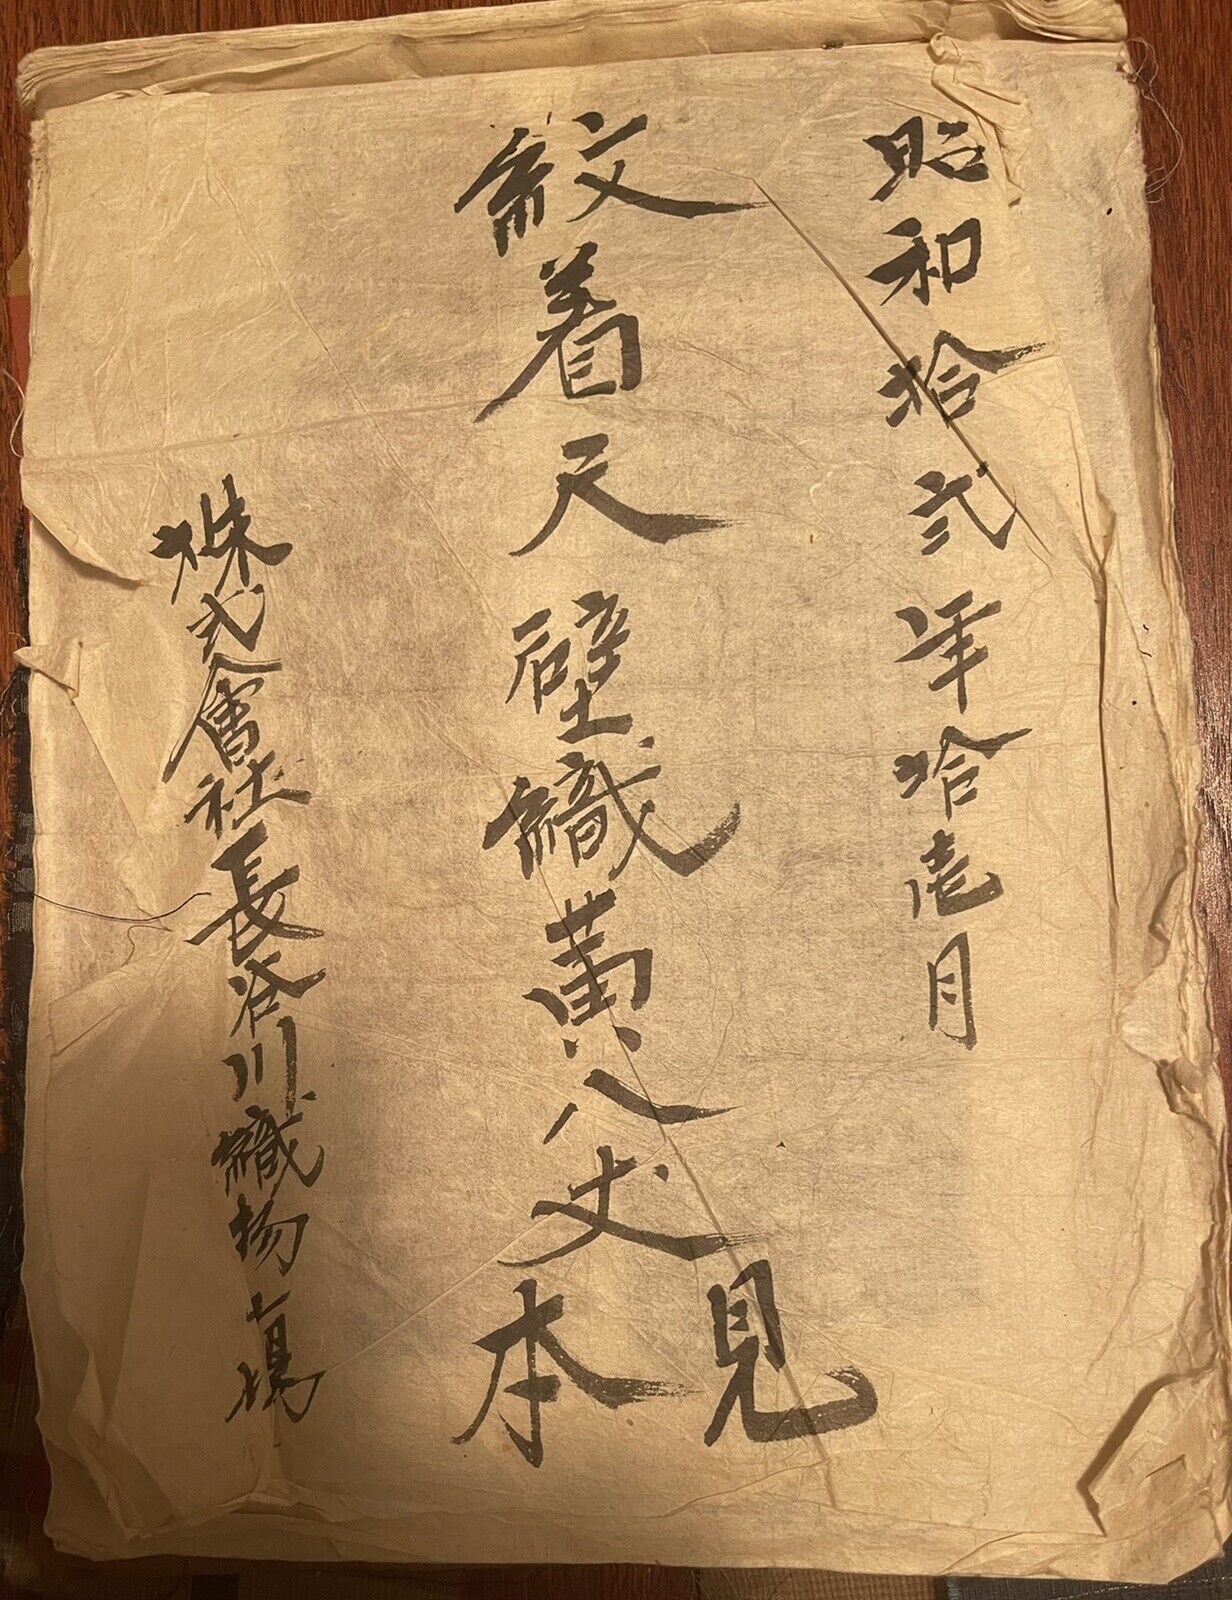 昭和拾弍年拾壱月
紋着尺 壁織黄八丈見本
株式會社長谷川織物場